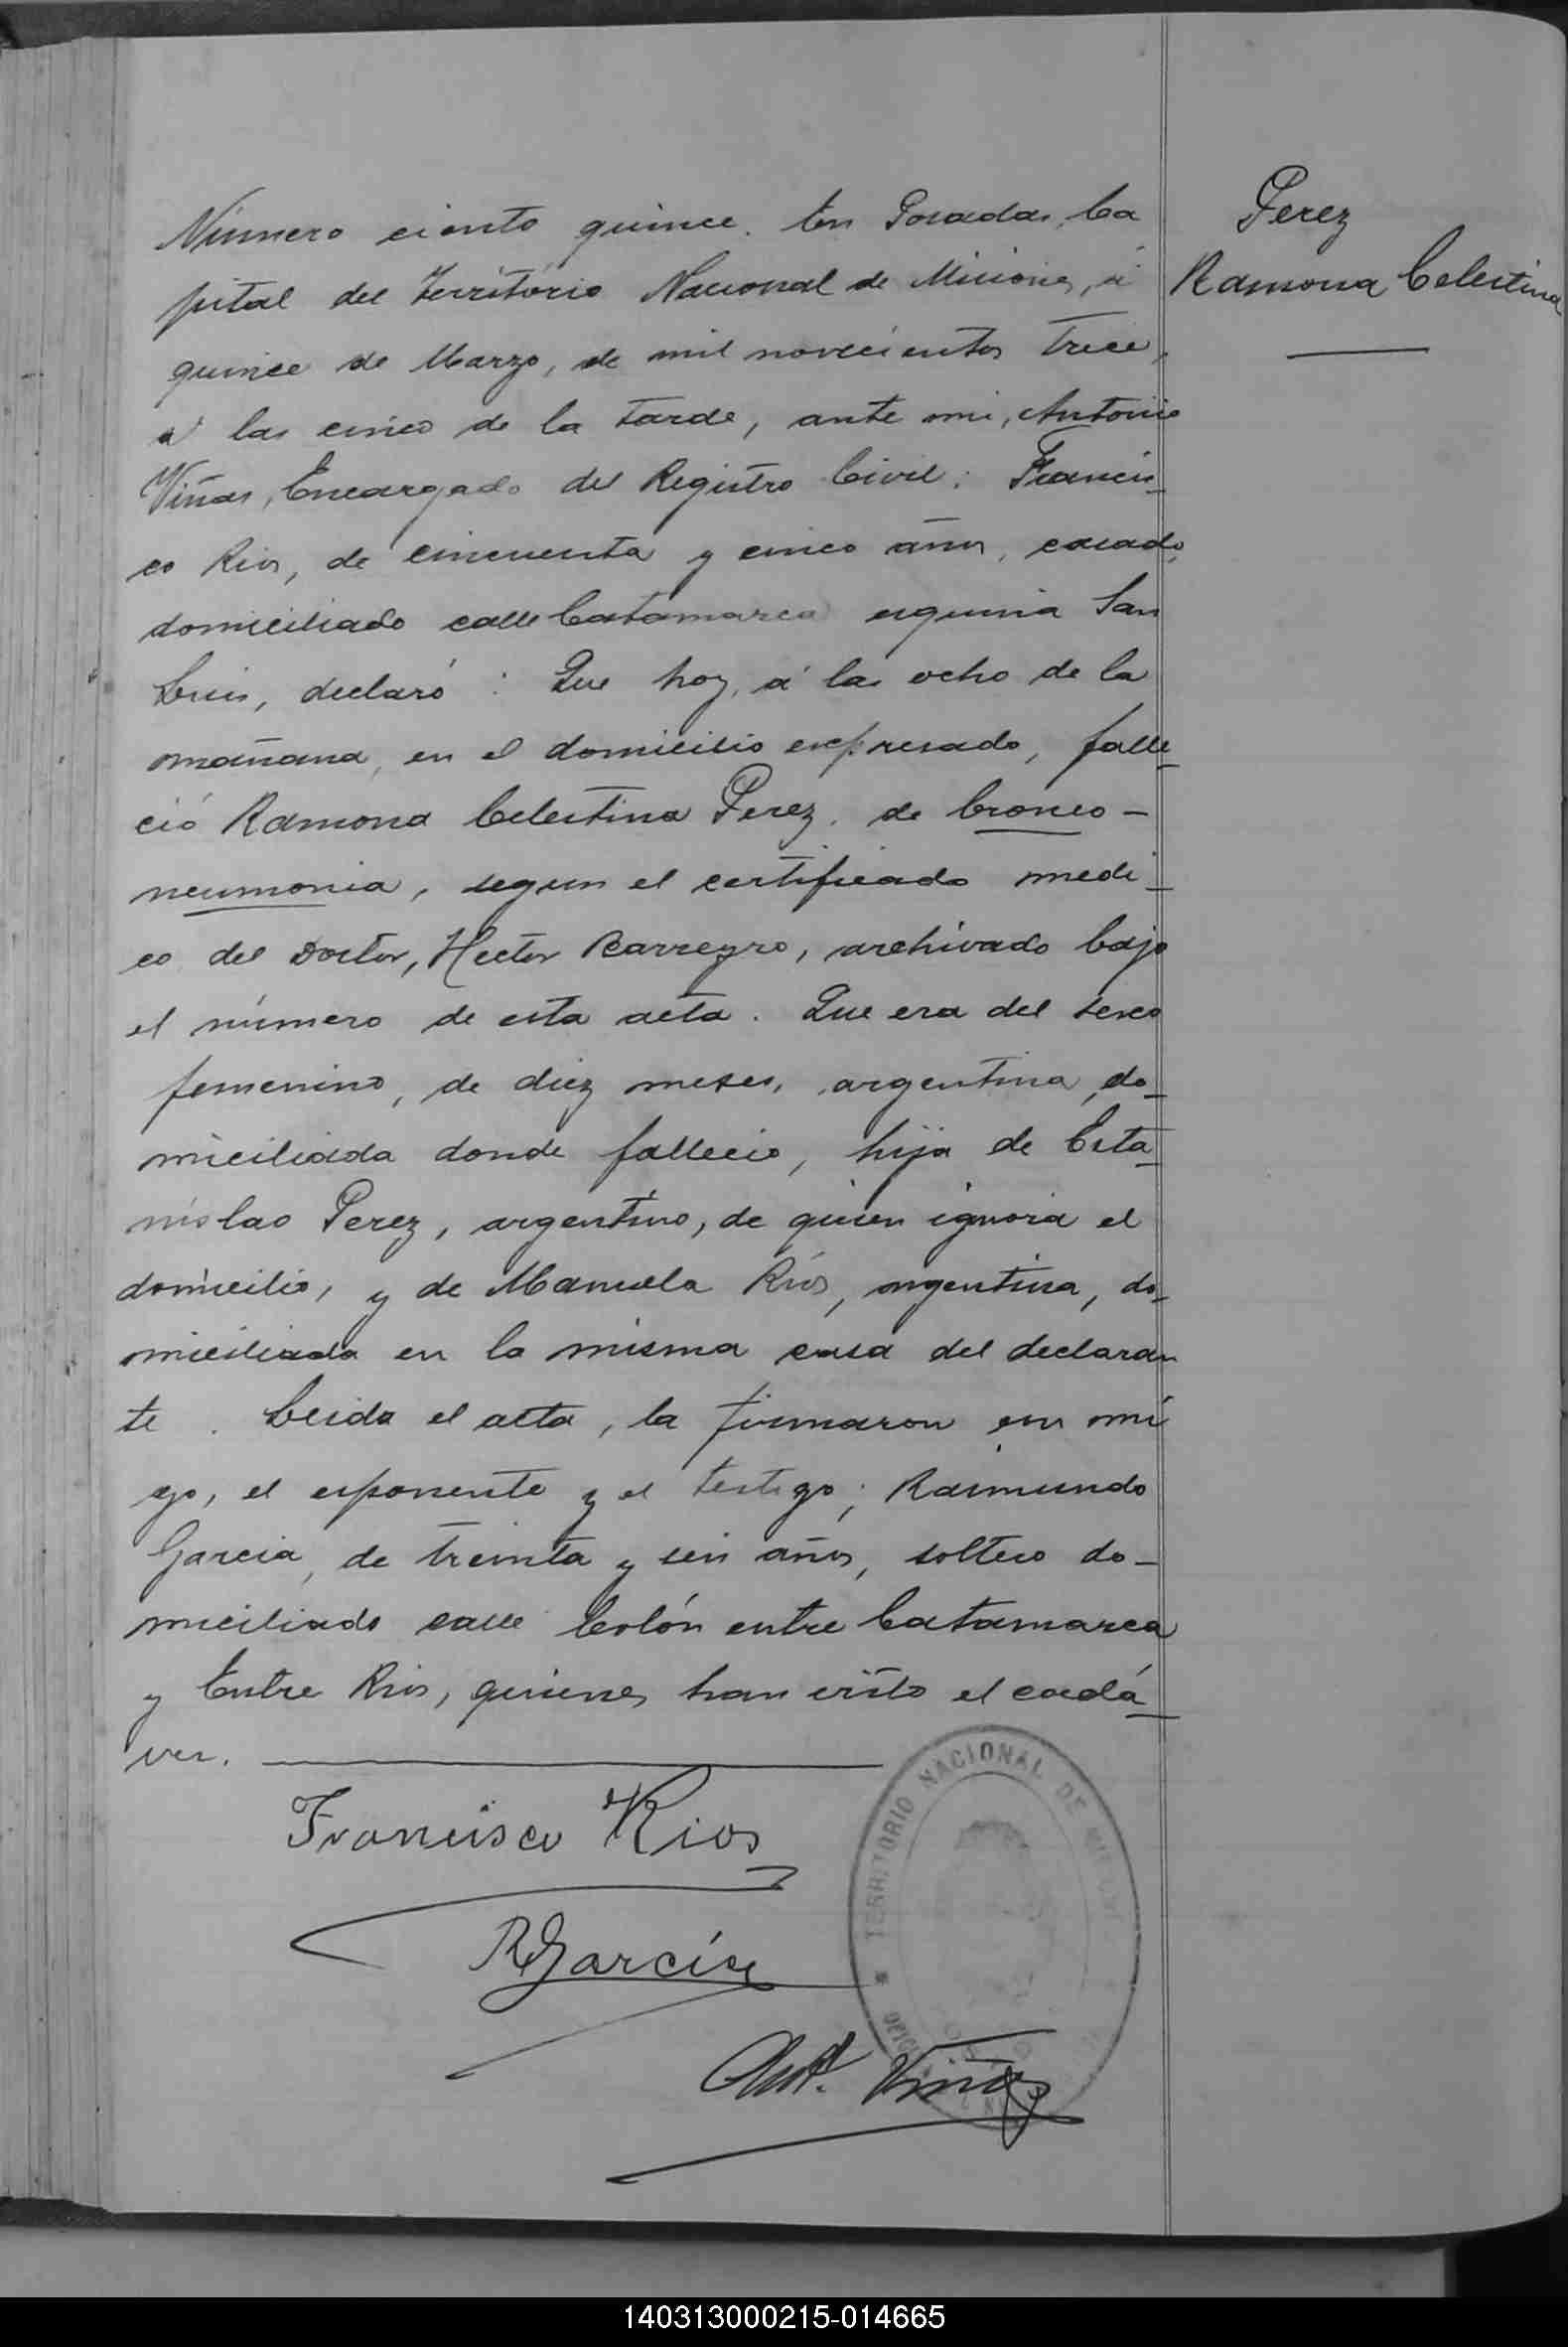 Perez
Ramona Celestina
Número ciento quince. En Posadas, Ca
pital del Territorio Nacional de Misiones, á
quince de Marzo, de mil novecientos trece,
á las cinco de la tarde, ante mi, Antonio
Viñas, Encargado del Registro Civil: Francis_
co Rios, de cincuenta y cinco años, casado,
domiciliado calle Catamarca esquina San
Luis, declaró: Que hoy, á las ocho de la
mañana, en el domicilio expresado, falle_
ció Ramona Celestina Perez, de bronco-
neumonia, segun el certificado medi_
co del Doctor, Hector Barreyro, archivado bajo
el número de esta acta. Que era del sexo
femenino, de diez meses, argentina, do_
miciliada donde fallecio, hija de Esta_
nislao Perez, argentino, de quien ignora el
domicilio, y de Manuela Rios, argentina, do_
miciliada en la misma casa del declaran
te. Leida el acta, la firmaron con mi
go, el esponente y el testigo; Raimundo
Garcia, de treinta y seis años, soltero do_
miciliado calle Colón entre Catamarca
y Entre Rios, quienes han visto el cadá_
ver.
Francisco Rios
RGarcía
Ant. Viñas
TERRITORIO NACIONAL DE
140313000215-014665